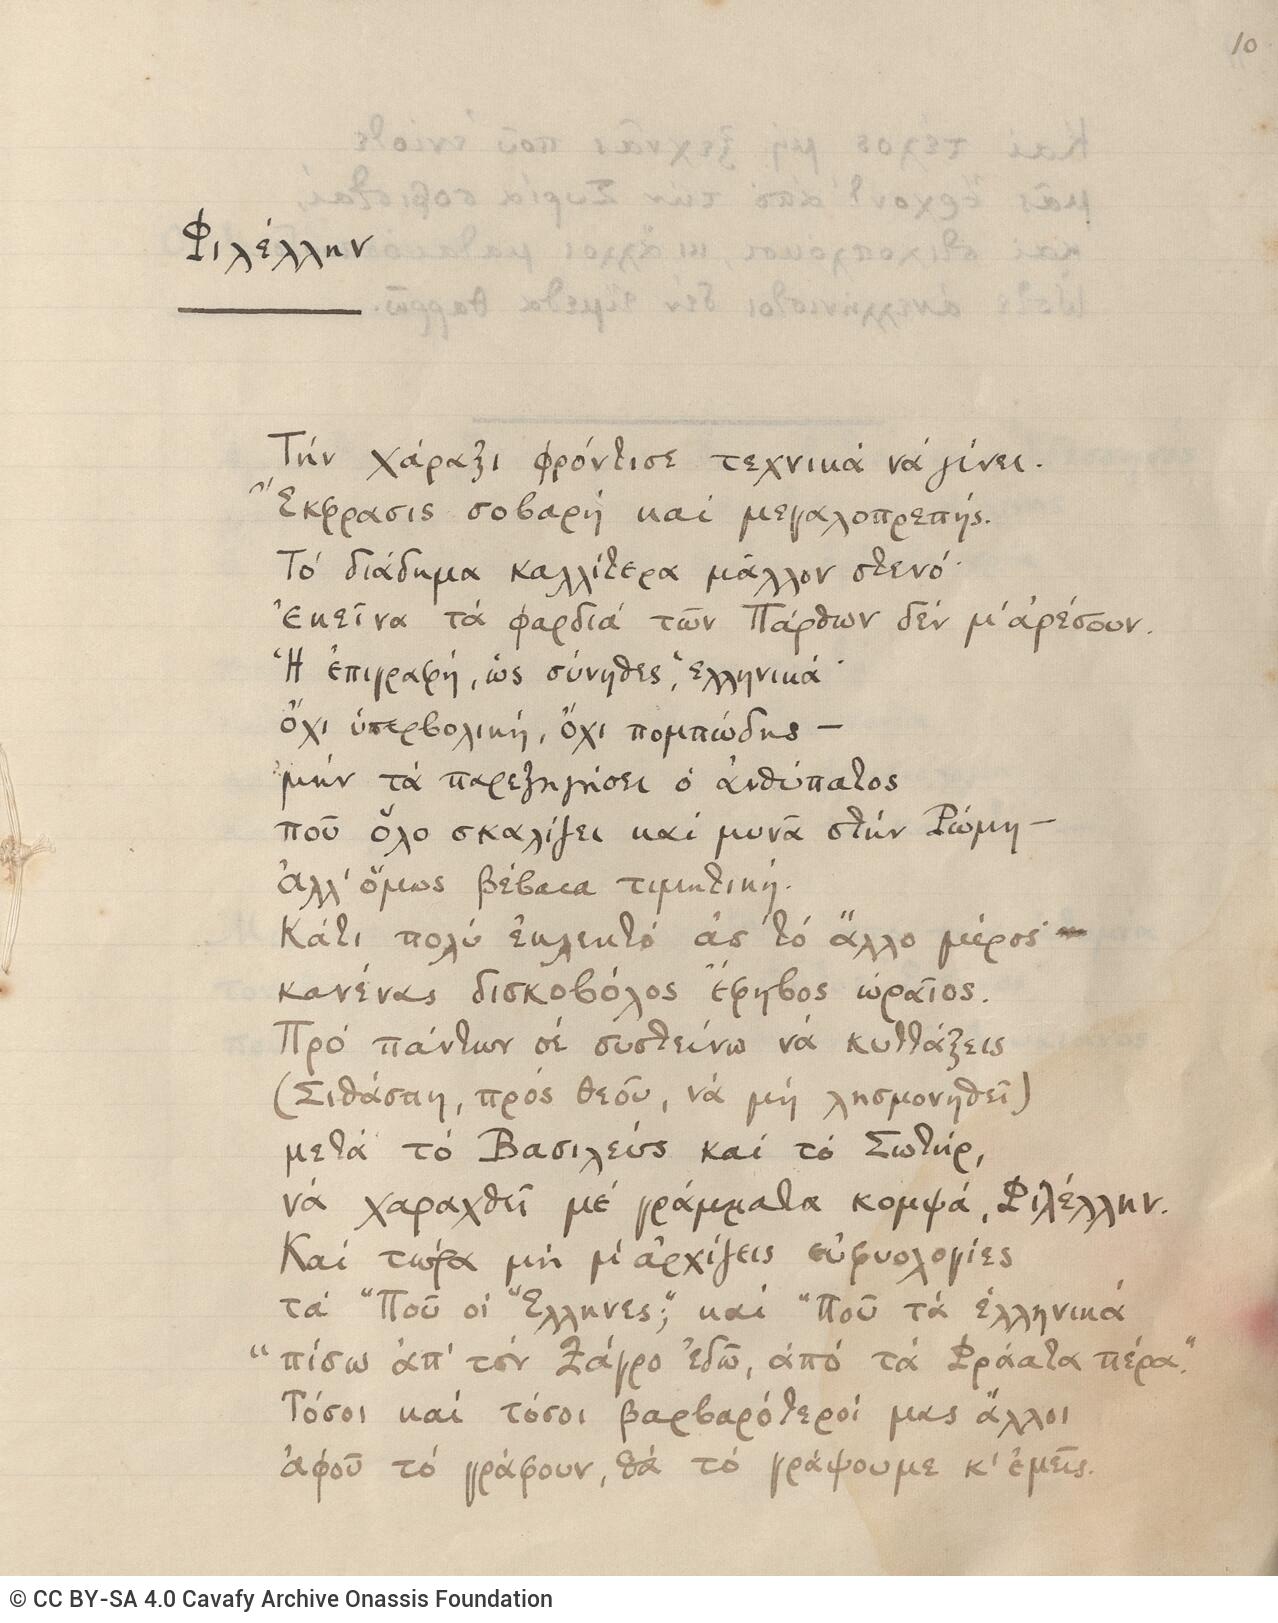 10
Φιλέλλην
Τήν χάραξι φρόντισε τεχνικά νά γίνει.
Ἔκφρασις σοβαρή καί μεγαλοπρεπής.
Τό διάδημα καλλίτερα μᾶλλον στενό·
ἐκεῖνα τά φαρδιά τῶν Πάρθων δέν μ' ἀρέσουν.
Ἡ ἐπιγραφή, ὡς σύνηθες, ἑλληνικά·
ὄχι ὑπερβολική, ὄχι πομπώδης —
μήν τά παρεξηγήσει ὁ ἀνθύπατος
πού ὅλο σκαλίζει καί μυνᾶ στήν Ρώμη —
ἀλλ' ὅμως βέβαια τιμητική.
Κάτι πολύ ἐκλεκτό ἀπ' τό ἄλλο μέρος·
κανένας δισκοβόλος ἔφηβος ὡραῖος.
Πρό πάντων σέ συστείνω νά κυττάξεις
(Σιθάσπη, πρός θεοῦ, νά μή λησμονηθεῖ)
μετά τό Βασιλεύς καί τό Σωτήρ,
νά χαραχθεῖ μέ γράμματα κομψά, Φιλέλλην.
Καί τώρα μή μ' ἀρχίζεις εὐφυολογίες
τά “Ποῦ οἱ Ἕλληνες;” καί “Ποῦ τά ἑλληνικά
“πίσω ἀπ' τόν Ζάγρο ἐδῶ, ἀπό τά Φράατα πέρα.”
Τόσοι καί τόσοι βαρβαρότεροί μας ἄλλοι
ἀφοῦ τό γράφουν, θά τό γράψουμε κ' ἐμεῖς.
© CC BY-SA 4.0 Cavafy Archive Onassis Foundation